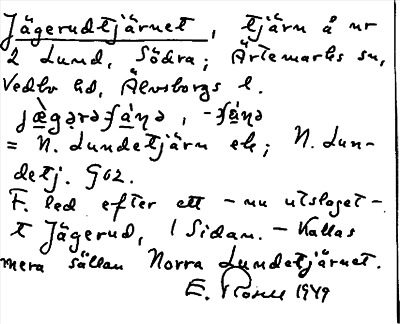 Jägerudtjärnet, tjärn å nr
2 Lund, Södra; Ärtemarks sn,
Vedbo hd, Älvsborgs l.
= N. Lundetjärn ek; N. Lun-
detj. G62.
F. led efter ett – nu utslaget –
t Jägerud, 1 Sidan. – Kallas
mera sällan Norra Lundetjärnet.
E. 1949